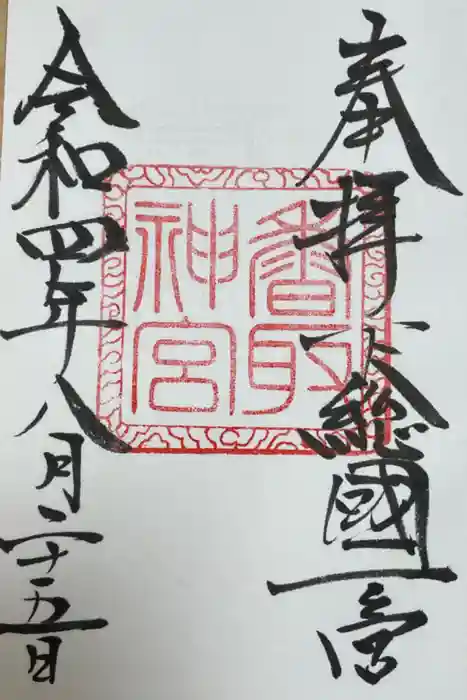 奉拝 下総國一宮
香取
神宮
令和四年八月二十五日